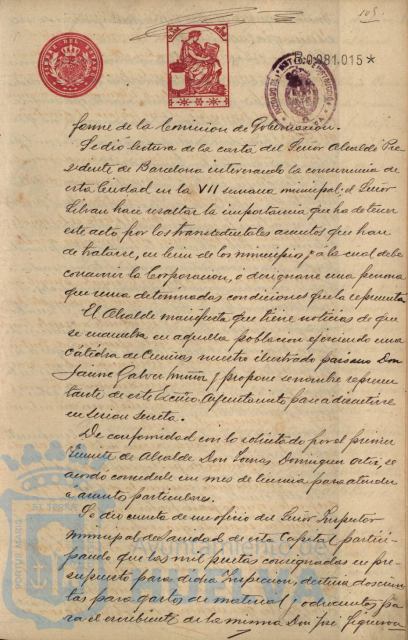 105
B.0.981.015*
TIMBRE DEL ESTADO
forme de la Comision de Gobernacion.
Se dió lectura de la carta del Señor Alcalde Pre
sidente de Barcelona interesando la concurrencia de
esta Ciudad en la VII semana municipal; el Señor
hace resaltar la importancia que ha de tener
este acto por los trascendentales asuntos que han
de tratarse, en bien de los municipios, á la cual debe
concurrir la Corporacion, o designarse una persona
que reuna determinadas condiciones que la represente
El Alcalde manifiesta que tiene noticias de que
se encuentra en aquella poblacion ejerciendo una
cátedra de Ciencias nuestro ilustrado paisano Don
Jaime Galvez Muñoz y propone se nombre represen
tante de este Excmo. Ayuntamiento para
en sesion secreta.
De conformidad con lo solicitado por el primer
Teniente de Alcalde Don Tomas Dominguez Ortiz, se
acordó concederle un mes de licencia para atender
a asuntos particulares.
Se dió cuenta de un oficio del Señor Inspector
municipal de Sanidad de esta Capital partici-
pando que las mil pesetas consignadas en pre-
supuesto para dicha Inspeccion, destina doscien
tas para gastos de material; y ochocientas pa
ra el escribiente de la misma Don José Figueroa